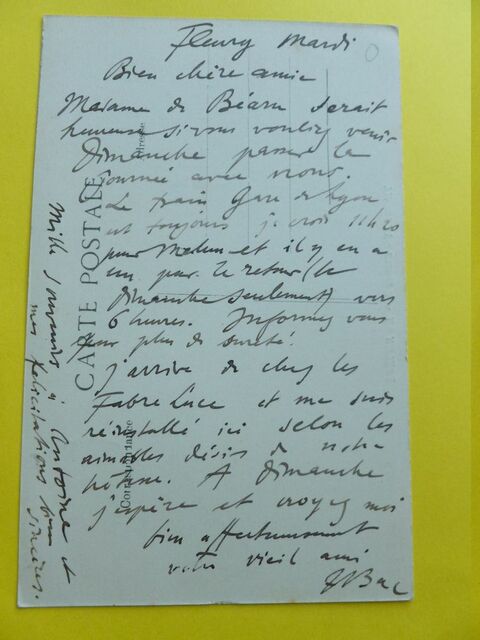 Fleury Mardi
Bien chère amie
Madame de Béarn serait
heureuse si vous vouliez venir
Dimanche passer la
journée avec nous.
Le train Gare de Lyon
est toujours je crois 11h20
pour Melun et il y en a
un pour le retour (le
dimanche seulement) vers
6 heures. Informez vous
pour plus de sureté.
j'arrive de chez les
Fabre Luce et me suis
réinstallé ici selon les
aimables désirs de notre
hôtesse. A dimanche
j'espère et croyez moi
bien affectueusement
votre vieil ami
Bac
Mille souvenirs à Antoine et
mes félicitations bien
sincères.
CARTE POSTALE
Correspondance
Adresse